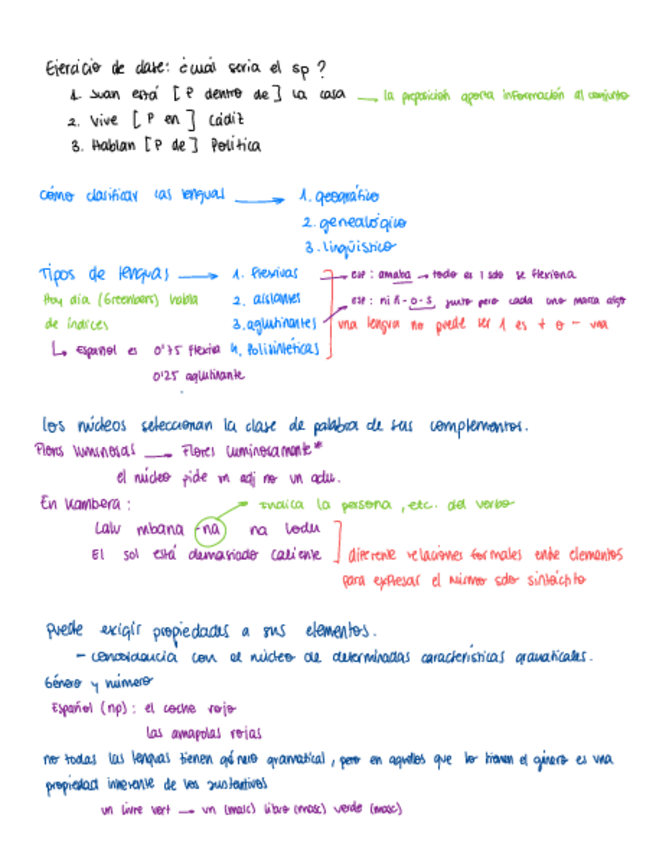 Ejercicio de clase: ¿cuál sería el sp?
1. Juan está [P dentro de] la casa → la preposición aporta información al conjunto
2. Vive [P en] Cádiz
3. Hablan [P de] Política
cómo clasificar las lenguas → 1. geográfico
2. genealógico
3. lingüístico
Tipos de lenguas → 1. flexivas → esp: amaba → todo es 1 solo se flexiona
Hoy día (Greenberg) habla 2. aislantes → esp: niñ-o-s, junto pero cada uno marca algo
de índices 3. aglutinantes una lengua no puede ser 1 es + o - una
↳ Español es 0'75 flexiva 4. Polisintéticas
0'25 aglutinante
Los núcleos seleccionan la clase de palabra de sus complementos.
Flores luminosas → Flores luminosamente*
el núcleo pide un adj no un adv.
En Kambera: → Indica la persona, etc. del verbo
Lalu mbana -na na lodu
El sol está demasiado caliente diferente relaciones formales entre elementos
para expresar el mismo sdo sintáctito
Puede exigir propiedades a sus elementos.
- concordancia con el núcleo de determinadas características gramaticales.
Género y número
Español (np): el coche rojo
las amapolas rojas
no todas las lenguas tienen género gramatical, pero en aquellos que lo tienen el género es una
propiedad inherente de los sustantivos
un livre vert → un (masc) libro (masc) verde (masc)